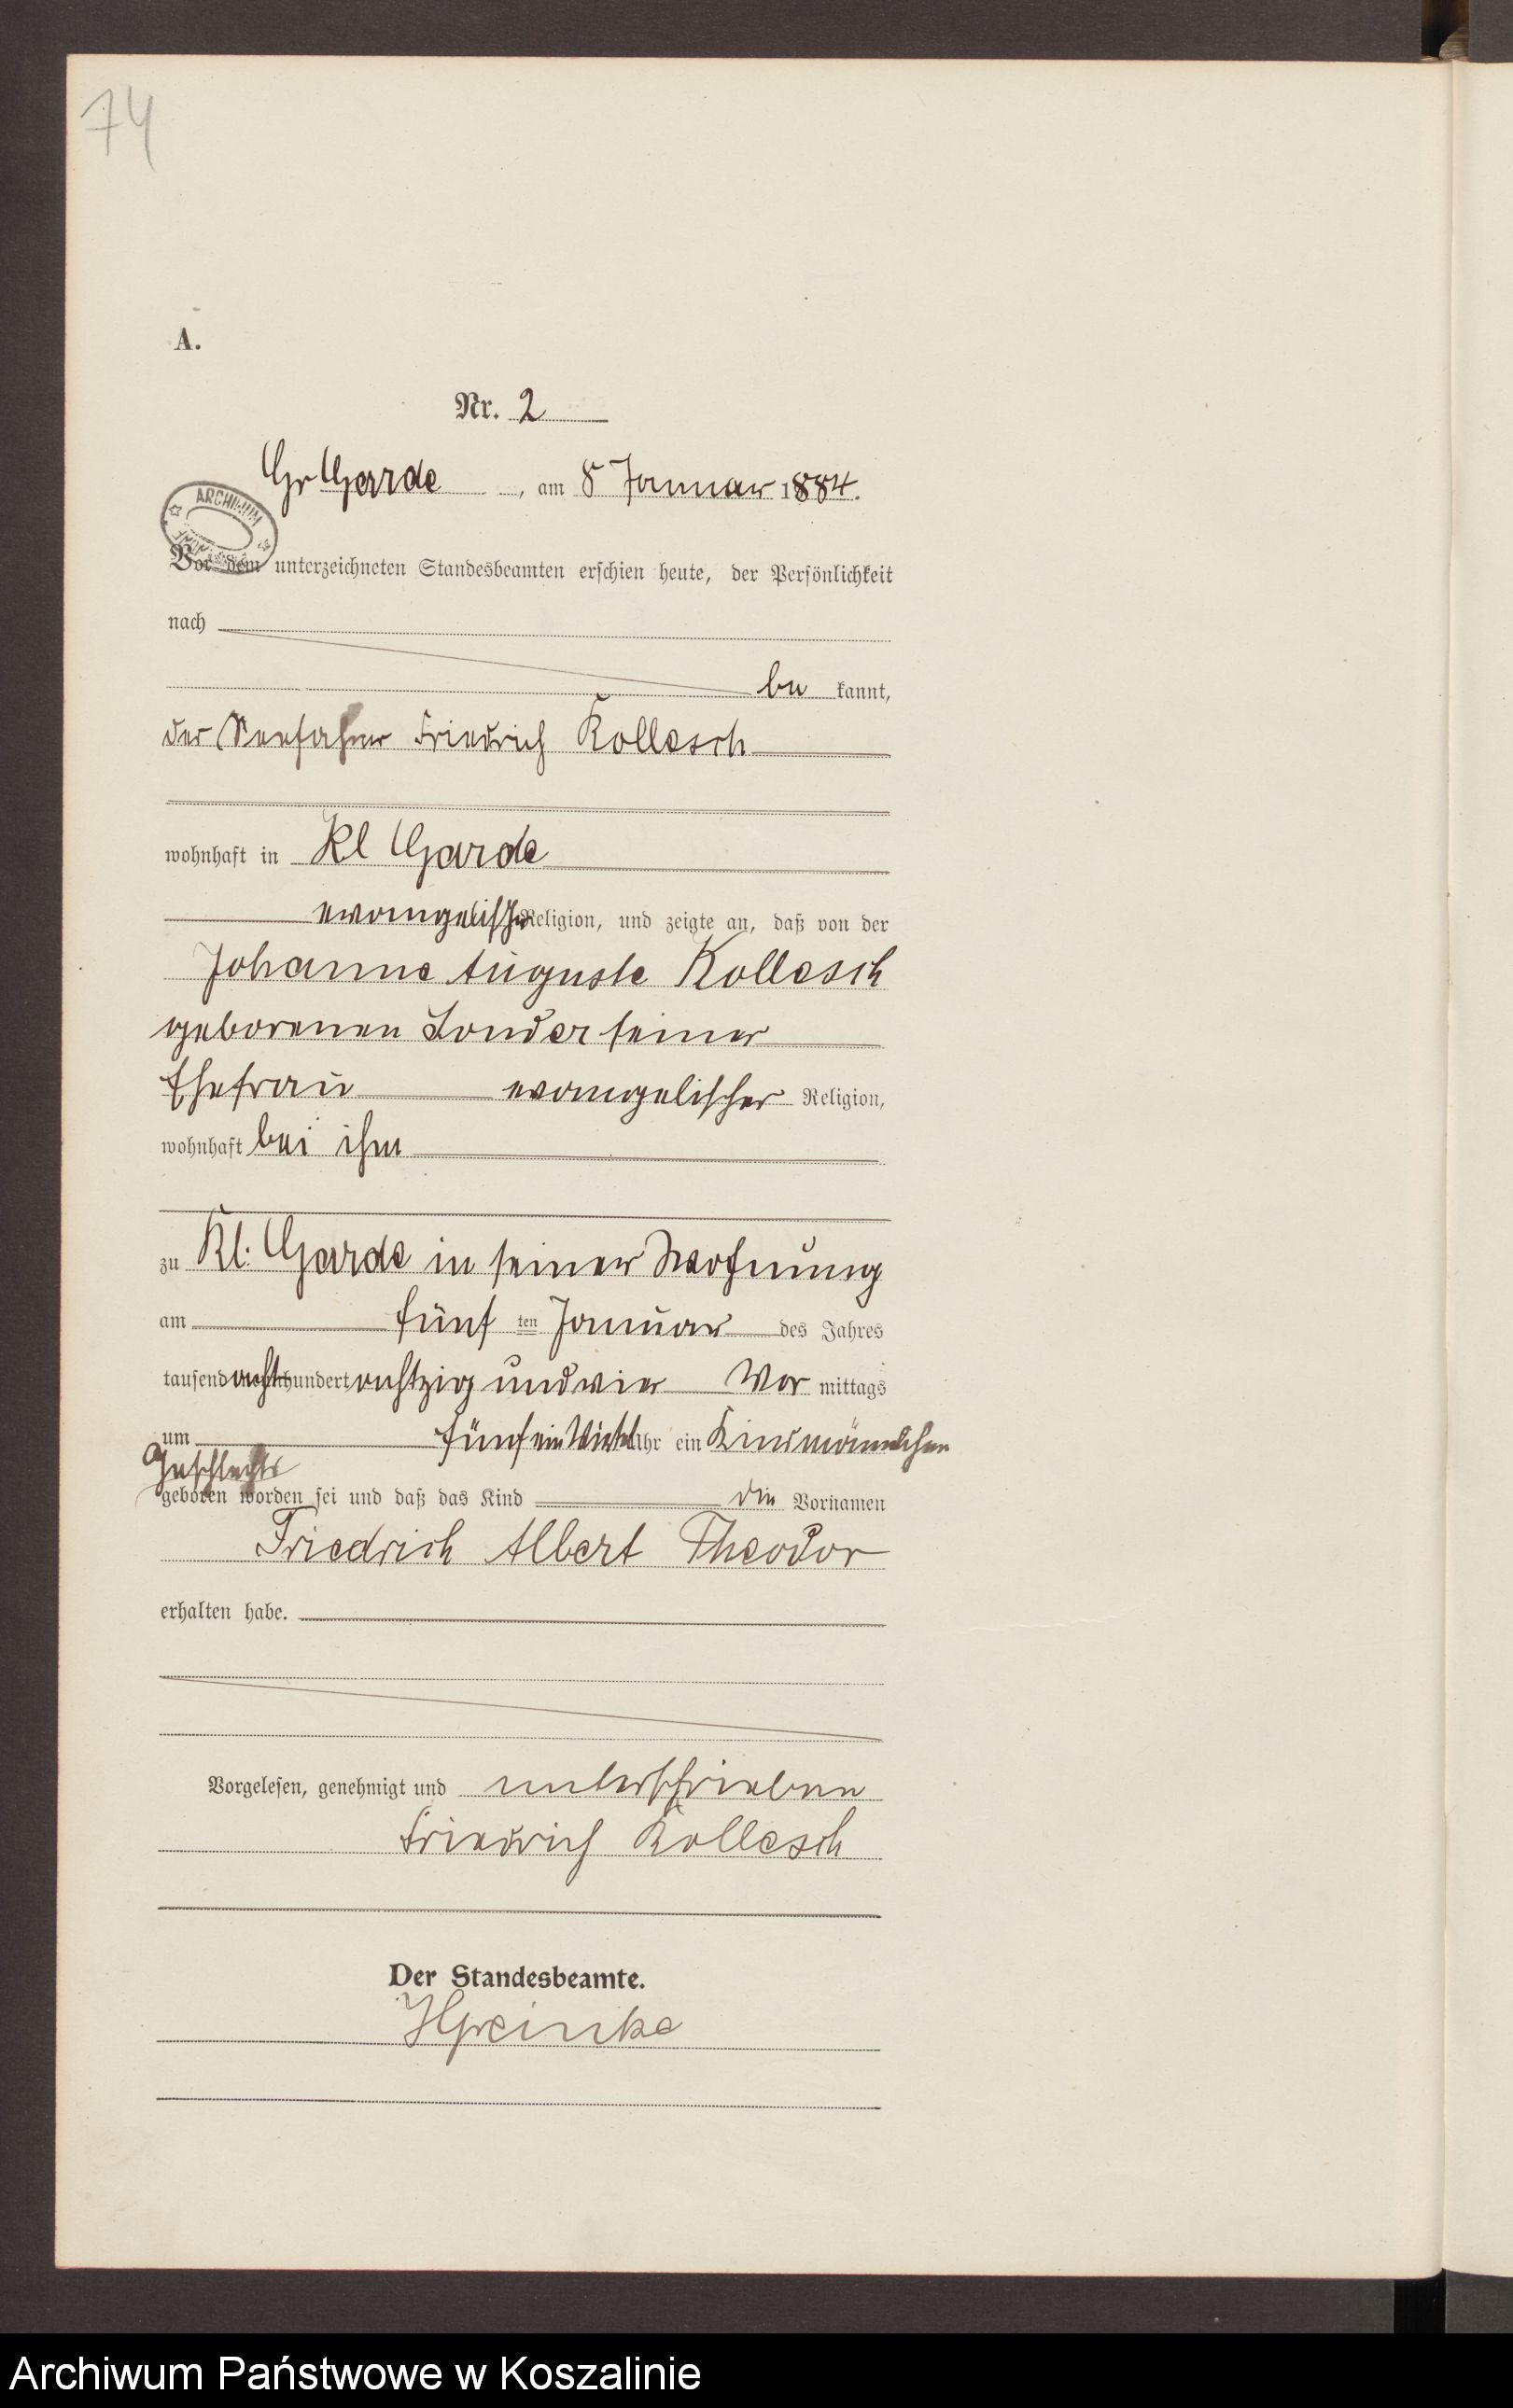 74
A.
Nr. 2
Gr Garde, am 8 Januar 1884.
ARCHIWUM
Vor dem unterzeichneten Standesbeamten erschien heute, der Persönlichkeit
nach
be kannt,
der Seefahrer Friedrich Kollesch
wohnhaft in Kl Garde
evangelischer Religion, und zeigte an, daß von der
Johanne Auguste Kollesch
geborenen Sonder seiner
Ehefrau evangelischer Religion,
wohnhaft bei ihm
zu Kl. Garde in seiner Wohnung
am fünf ten Januar des Jahres
tausend acht hundert achtzig und vier Vor mittags
um fünf ein Viertel Uhr ein Kind männlichen
Geschlechts
geboren worden sei und daß das Kind die Vornamen
Friedrich Albert Theodor
erhalten habe.
Vorgelesen, genehmigt und unterschrieben
Friedrich Kollesch
Der Standesbeamte.
Archiwum Państwowe w Koszalinie